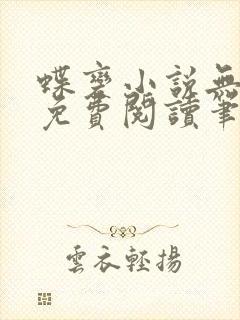 蝶变小說無
免費閱讀筆
雲衣輕揚